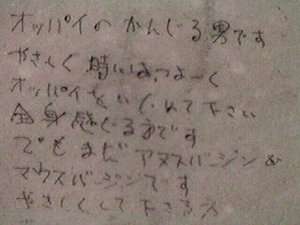 オッパイの かんじる 男です
やさしく 時にはつよーく
オッパイを いじって下さい
全身感じる男です
でもまだ アヌスバージン &
マウスバージンです
やさしくして下さる方